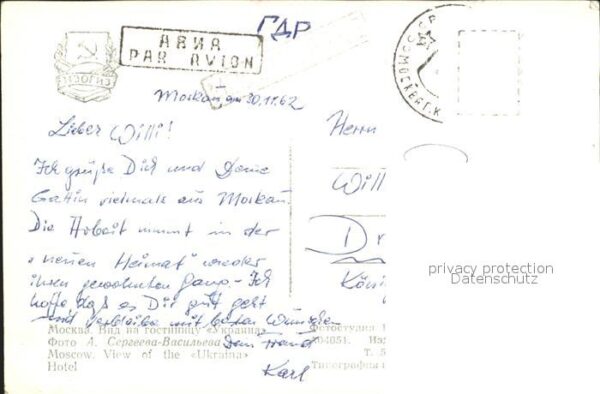 ГДР
АВИА
PAR AVION
ИЗОГИЗ
Moskau, am 30.11.62
Lieber Willi!
Ich grüße Dich und Deine
Gattin vielmals aus Moskau.
Die Arbeit nimmt in der
"neuen Heimat" wieder
ihren gewohnten Gang. Ich
hoffe daß es Dir gut geht
und verbleibe mit besten Wünschen
Dein Freund
Karl
Herrn
Will
Dr
Köni
privacy protection
Datenschutz
Москва. Вид на гостиницу «Украина»
Фото А. Сергеева-Васильева
Moscow. View of the «Ukraina»
Hotel
Фотостудия
А04851. Из
Т. 5
Типография